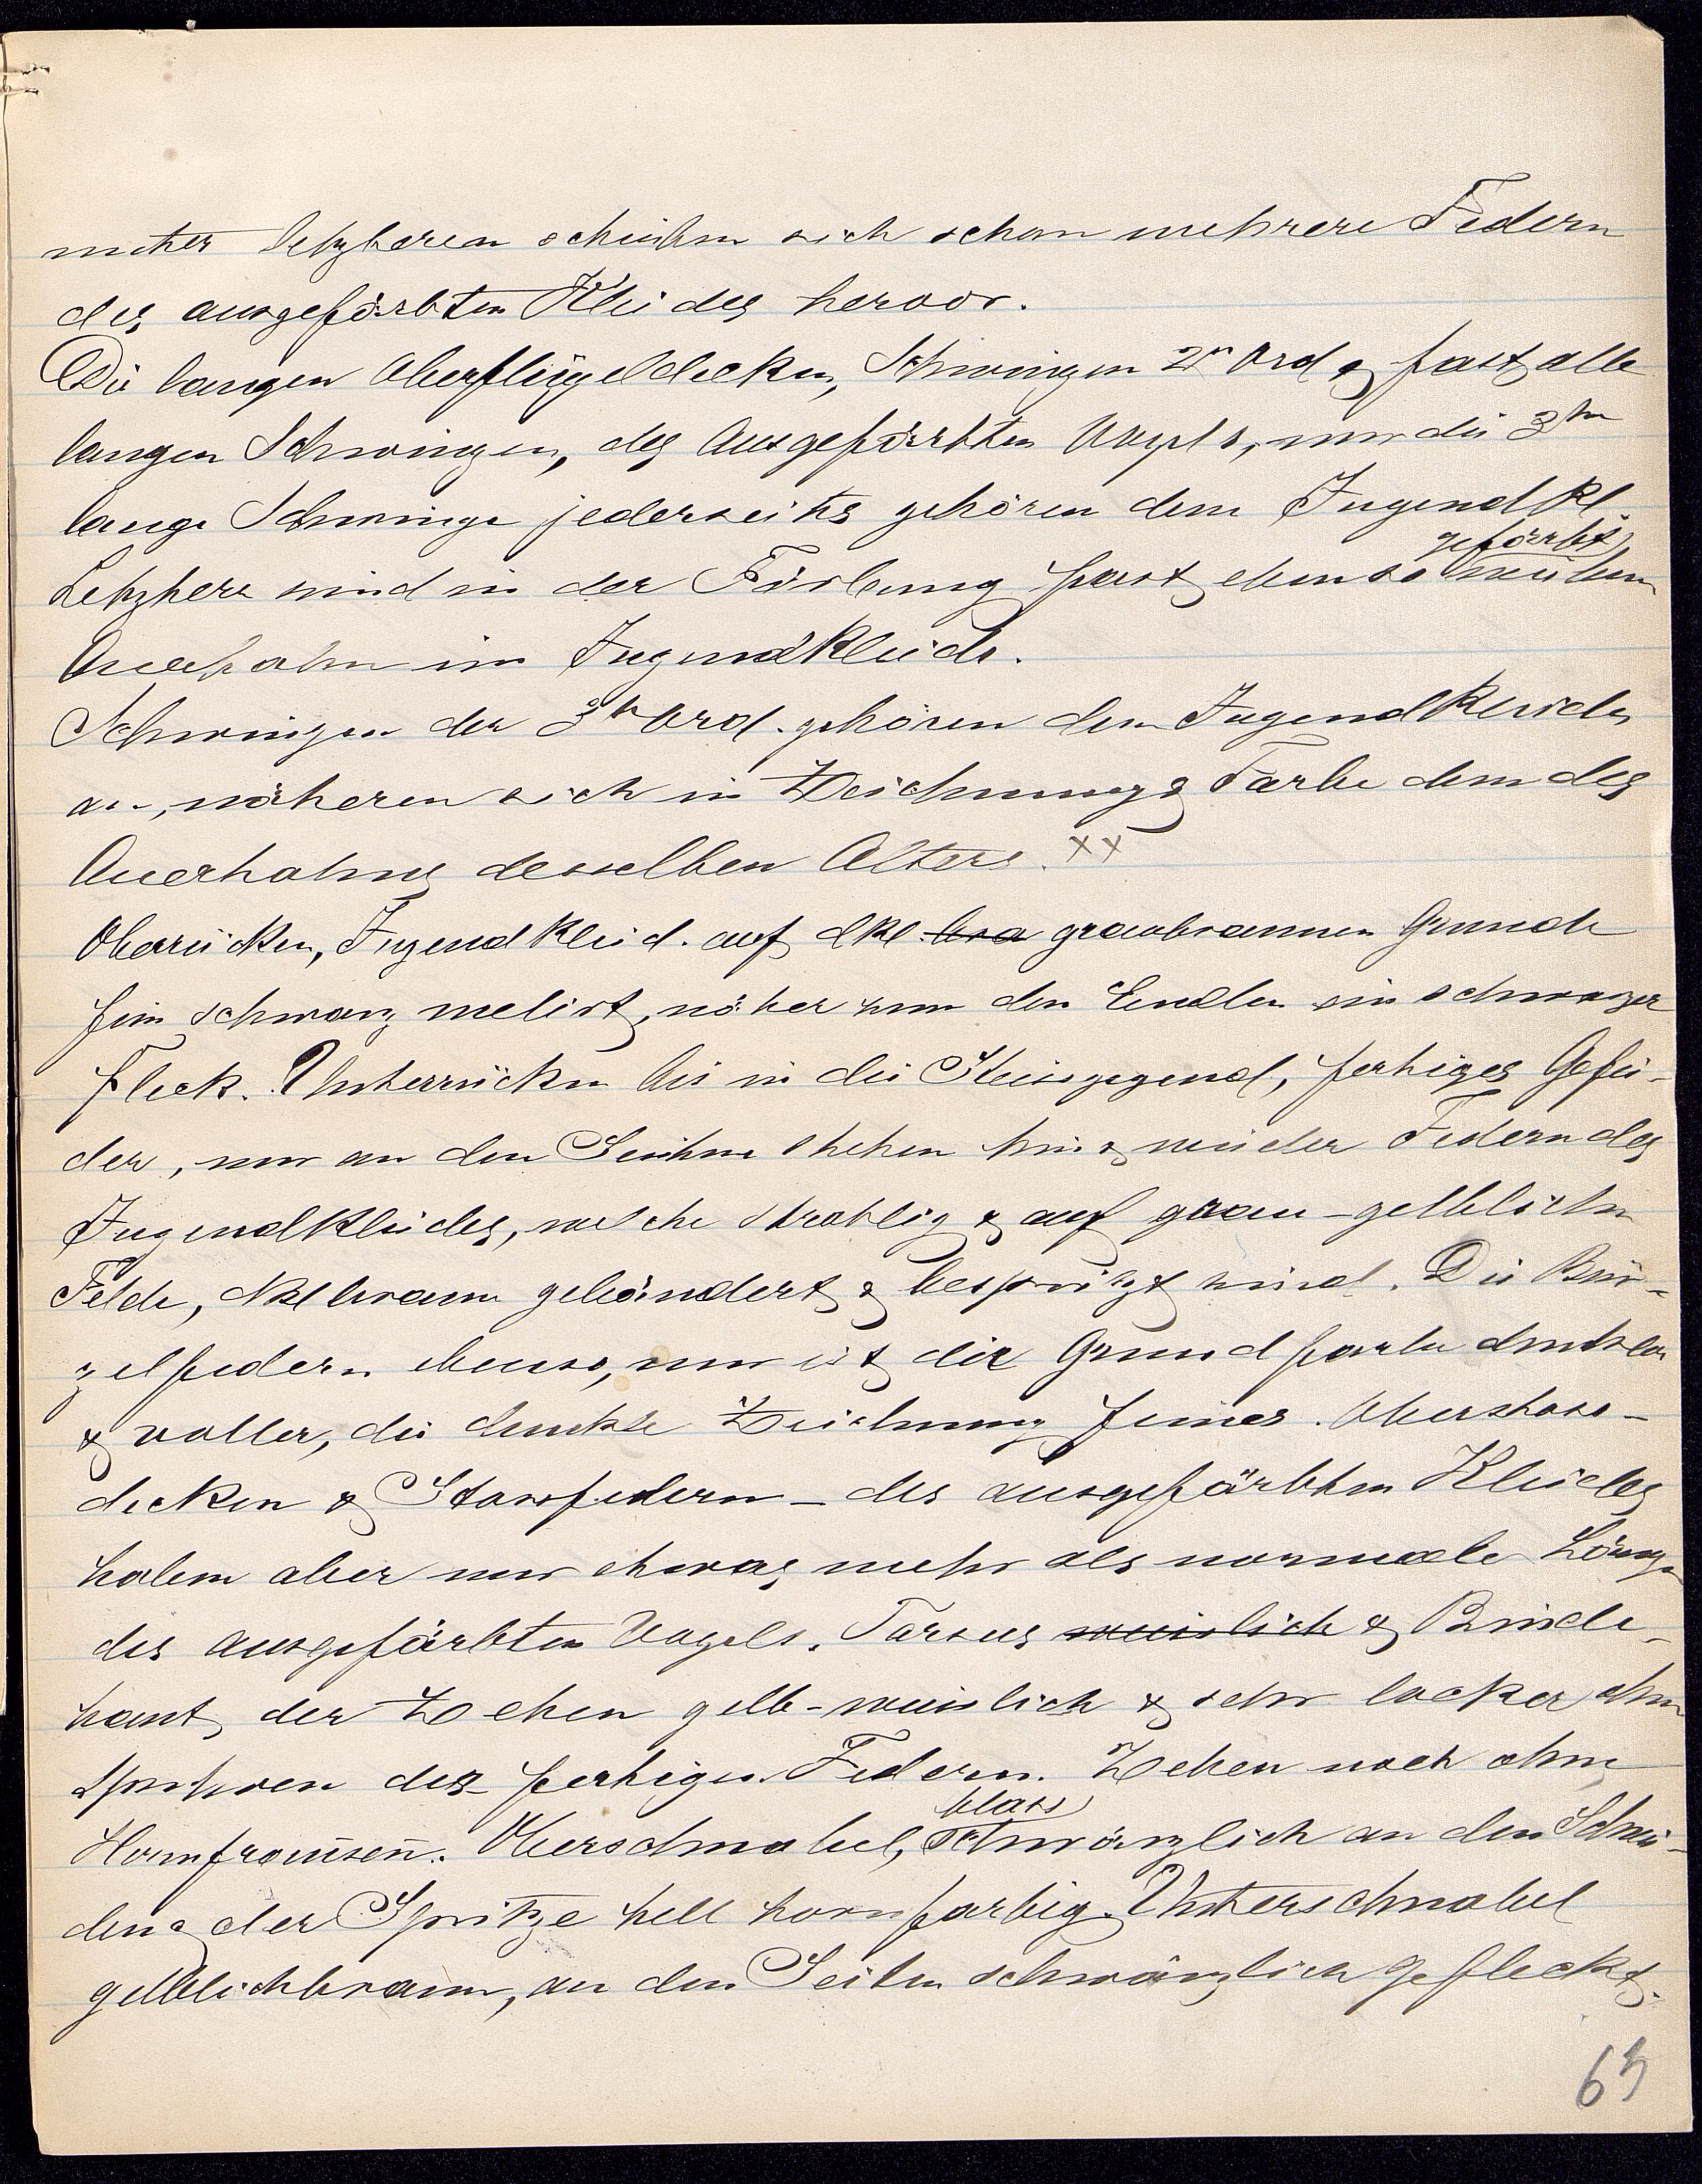 unter letzteren schieben sich schon mehrere Federn
des ausgefärbten Kleides hervor.
Die langen Oberflügeldecken, Schwingen 2r Ord & fast alle
langen Schwingen, des Ausgefärbten Vogels, nur die 3te
lange Schwinge jederseits gehören dem Jugendkl.
Letztere sind in der Färbung fast ebenso gefärbt wie beim
Auerhahn im Jugendkleide.
Schwingen der 3r Ord. gehören dem Jugendkleide
an, näheren sich in Zeichnung & Farbe dem des
Auerhahns desselben Alters. xx
Oberrücken, Jugendkleid. auf dkl. bra graubraunen Grunde
fein schwarz melirt, näher den Enden ein schwarzer
Fleck. Unterrücken bis in die Steissgegend, fertiges Gefie-
der, nur an den Seiten stehen hin & wieder Federn des
Jugendkleides, welche strahlig & auf grau-gelblichen
Felde, dklbraun gebändert & bespritzt sind. Die Bür-
zelfedern ebenso, nur ist die Grundfarbe dunkler
& voller, die dunkle Zeichnung feiner. Oberstoss-
decken & Stossfedern - des ausgefärbten Kleides
haben aber nur etwas mehr als normale Länge
des ausgefärbten Vogels. Tarsus weisslich & Binde-
haut der Zehen gelb-weisslich & sehr locker ohne
Spuren der fertigen Federn. Zehen noch ohne
Hornfransen. Oberschnabel, blass schwärzlich an den Schnei-
den & der Spitze hell hornfarbig. Unterschnabel
gelblichbraun, an den Seiten schwärzlich gefleckt.